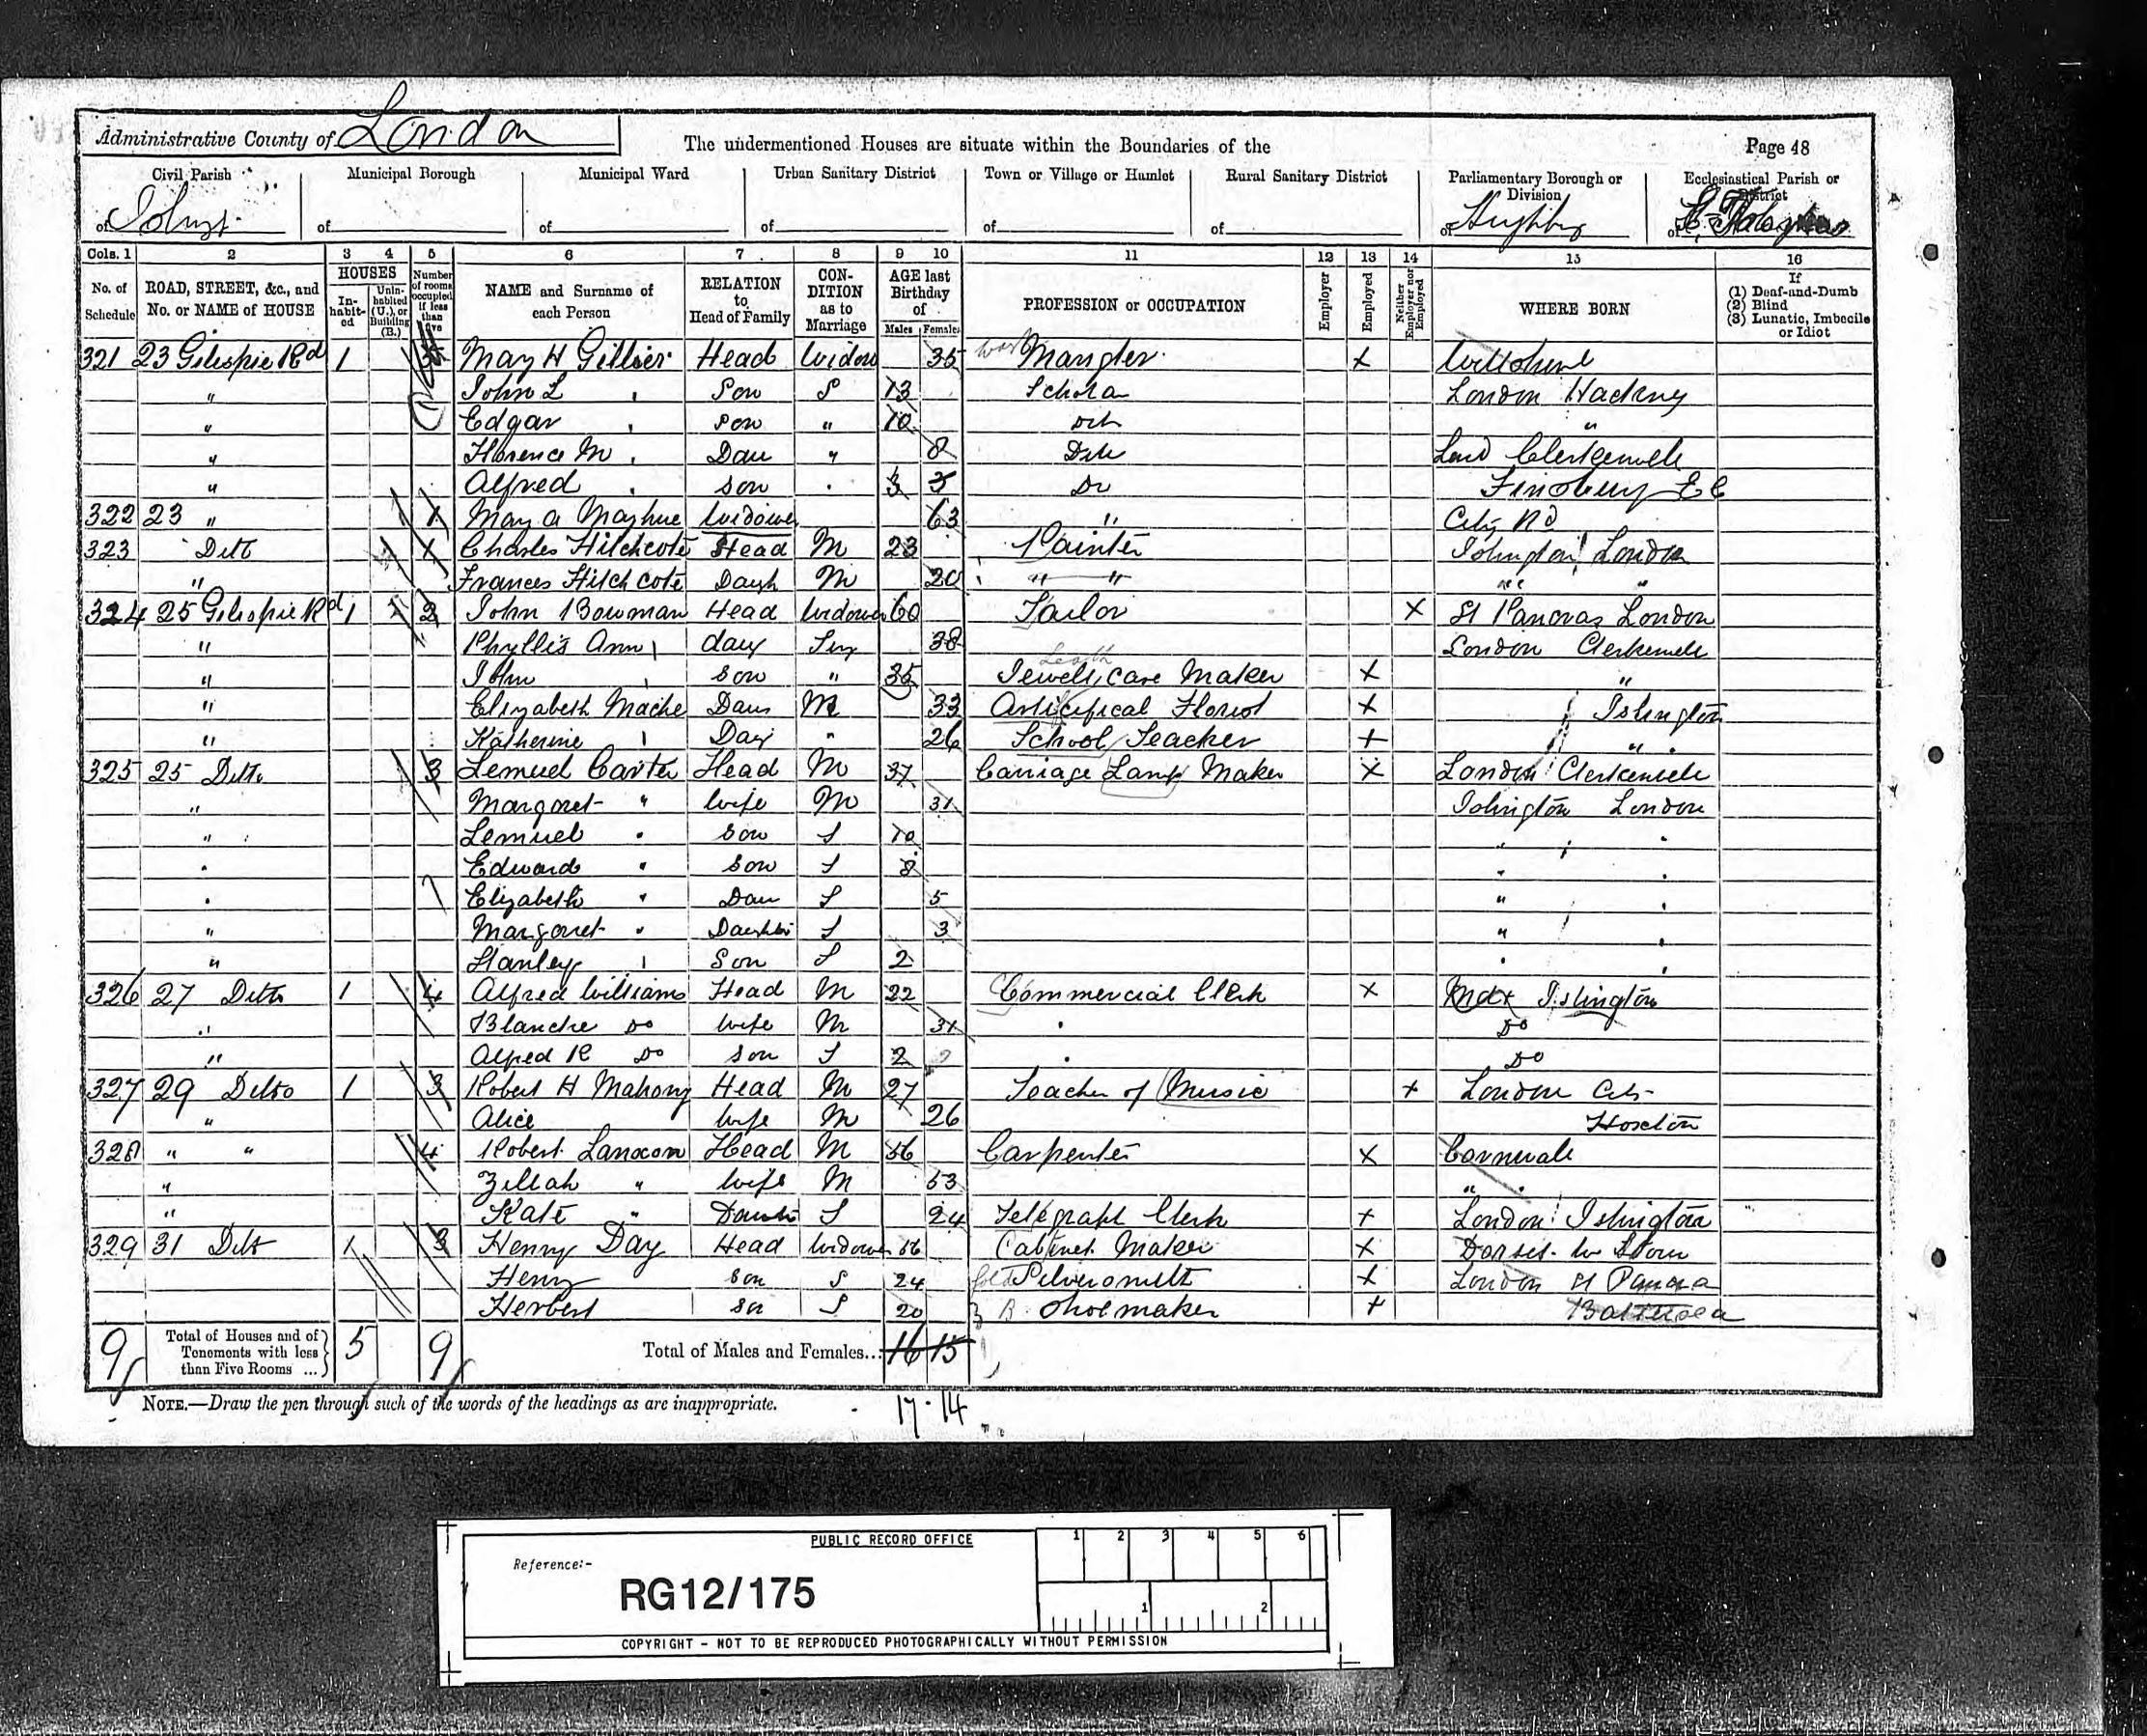 Administrative County of London
The undermentioned Houses are situate within the Boundaries of the
Page 48
Civil Parish Municipal Borough Municipal Ward Urban Sanitary District Town or Village or Hamlet Rural Sanitary District Parliamentary Borough or Division Ecclesiastical Parish or District
of of of of of of of of
Cols. 1 2 3 4 5 6 7 8 9 10 11 12 13 14 15 16
No. of Schedule ROAD, STREET, &c., and No. or NAME of HOUSE HOUSES In-habit-ed Unin-habited (U.), or Building (B.) Number of rooms occupied if less than five NAME and Surname of each Person RELATION to Head of Family CON-DITION as to Marriage AGE last Birthday of Males Females PROFESSION or OCCUPATION Employer Employed Neither Employer nor Employed WHERE BORN If (1) Deaf-and-Dumb (2) Blind (3) Lunatic, Imbecile or Idiot
321 23 Gilespie Rd 1 May H Gillier Head Widow 35 Mangler x Wiltshire
" John L Son S 13 Schola London Hackney
" Edgar Son " 10 "
" Florence M Dau " 8 Lond Clerkenwell
" Alfred Son 3 Do Finsbury E C
322 23 " 1 May A Mayhue Widow 63 " City Rd
323 Ditt 1 Charles Hitchcote Head M 23 Painter Islington London
" Frances Hitchcote Daugh M 20 " " " "
324 25 Gilespie Rd 1 2 John Bowman Head Widower 60 Tailor x St Pancras London
" Phyllis Ann daug Sing 38 London Clerkenwell
" John son " 35 Jewell Case Maker x "
" Elizabeth Mache Daur M 33 Artificial Florist x Islington
" Katherine Daug " 26 School Teacher x "
325 25 Ditto 3 Lemuel Carter Head M 37 Carriage Lamp Maker x London Clerkenwell
" Margaret " Wife M 31 Islington London
" Lemuel " Son S 10
" Edward " Son S 8
" Elizabeth " Dau S 5 "
" Margaret " Daughter S 3 "
" Stanley Son S 2
326 27 Ditto 1 4 Alfred Williams Head M 22 Commercial Clerk x Mdx Islington
" Blanche Do Wife M 31 Do
" Alfred R Do Son S 2 Do
327 29 Ditto 1 3 Robert H Mahony Head M 27 Teacher of Music x London City
" Alice Wife M 26 Hoxton
328 " " 4 Robert Lanxon Head M 56 Carpenter x Cornwall
" Zillah " Wife M 53 "
" Kate " Daughter S 24 Telegraph Clerk x London Islington
329 31 Ditt 1 3 Henry Day Head Widower 56 Cabinet Maker x Dorset
Henry Son S 24 Silversmith x London St Pancra
Herbert Son S 20 Shoemaker x Battersea
9 Total of Houses and of Tenements with less than Five Rooms ... 5 9 Total of Males and Females... 16 15
NOTE.—Draw the pen through such of the words of the headings as are inappropriate.
17 · 14
PUBLIC RECORD OFFICE
Reference:-
RG12/175
1 2 3 4 5 6
1 2
COPYRIGHT - NOT TO BE REPRODUCED PHOTOGRAPHICALLY WITHOUT PERMISSION